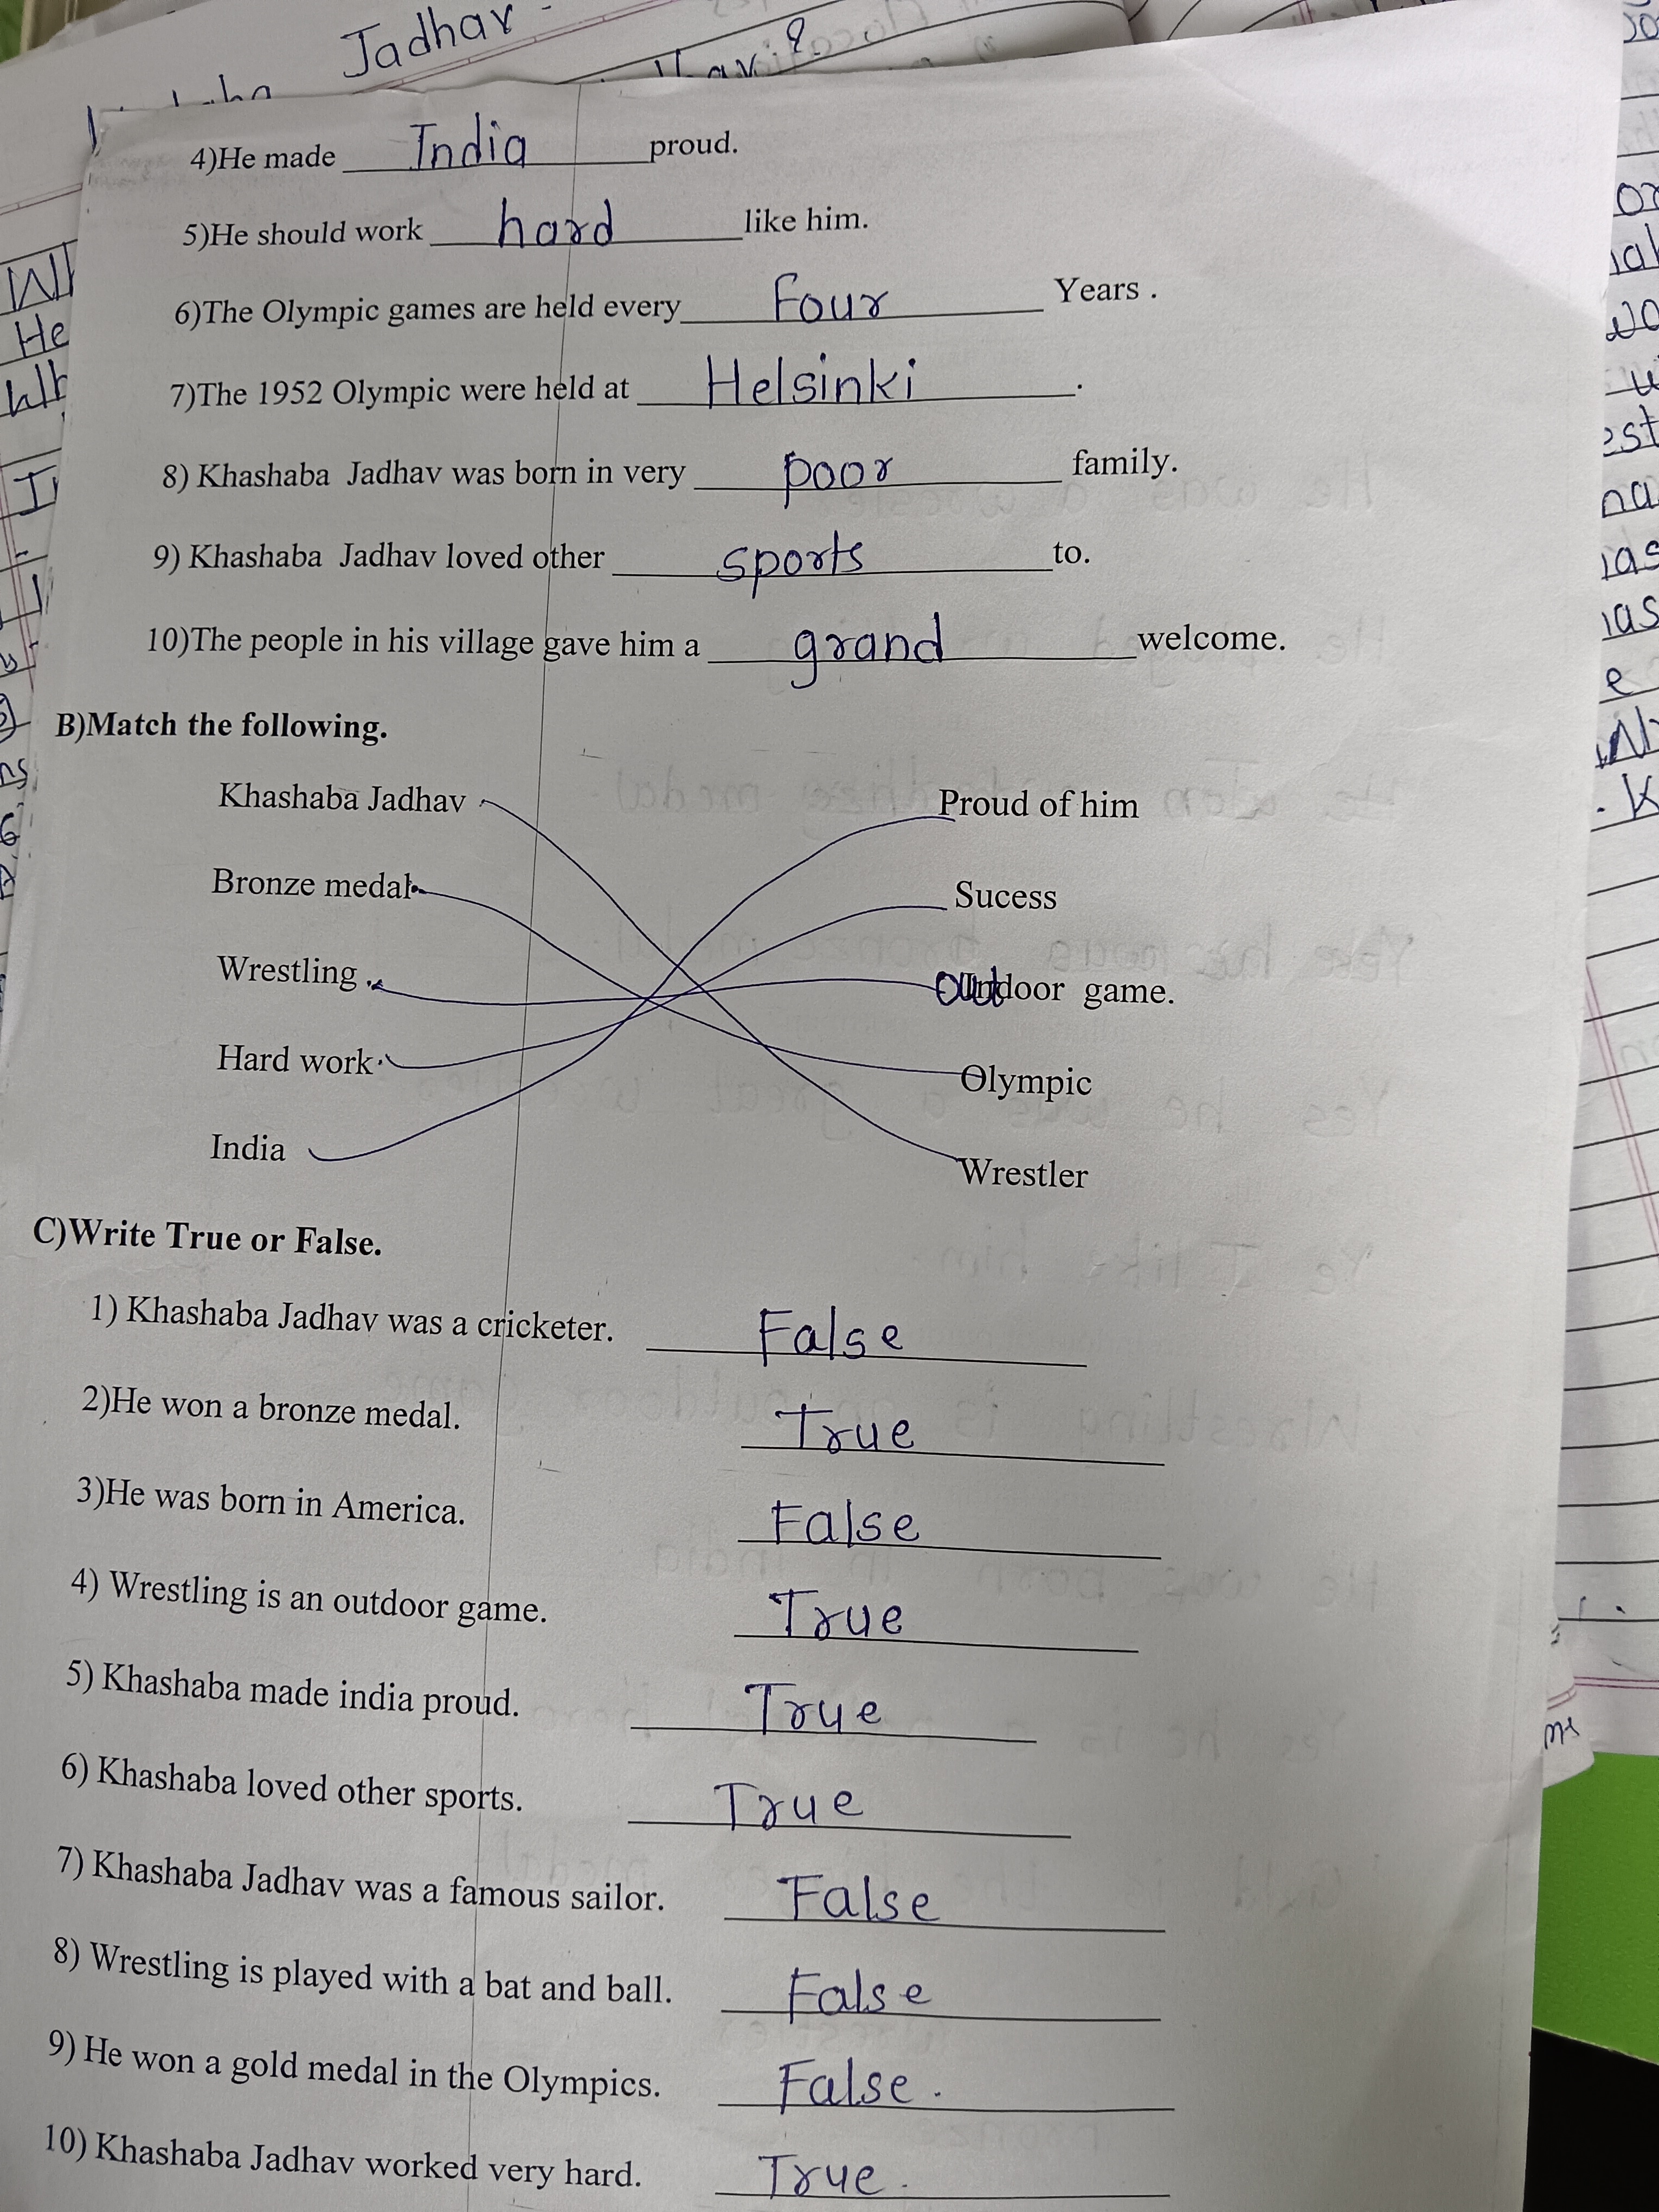 Jadhav -
4)He made India proud.
5)He should work hard like him.
6)The Olympic games are held every Four Years .
7)The 1952 Olympic were held at Helsinki .
8) Khashaba Jadhav was born in very poor family.
9) Khashaba Jadhav loved other sports to.
10)The people in his village gave him a grand welcome.
B)Match the following.
Khashaba Jadhav Proud of him
Bronze medal Sucess
Wrestling Outdoor game.
Hard work Olympic
India Wrestler
C)Write True or False.
1) Khashaba Jadhav was a cricketer. False
2)He won a bronze medal. True
3)He was born in America. False
4) Wrestling is an outdoor game. True
5) Khashaba made india proud. True
6) Khashaba loved other sports. True
7) Khashaba Jadhav was a famous sailor. False
8) Wrestling is played with a bat and ball. False
9) He won a gold medal in the Olympics. False .
10) Khashaba Jadhav worked very hard. True .